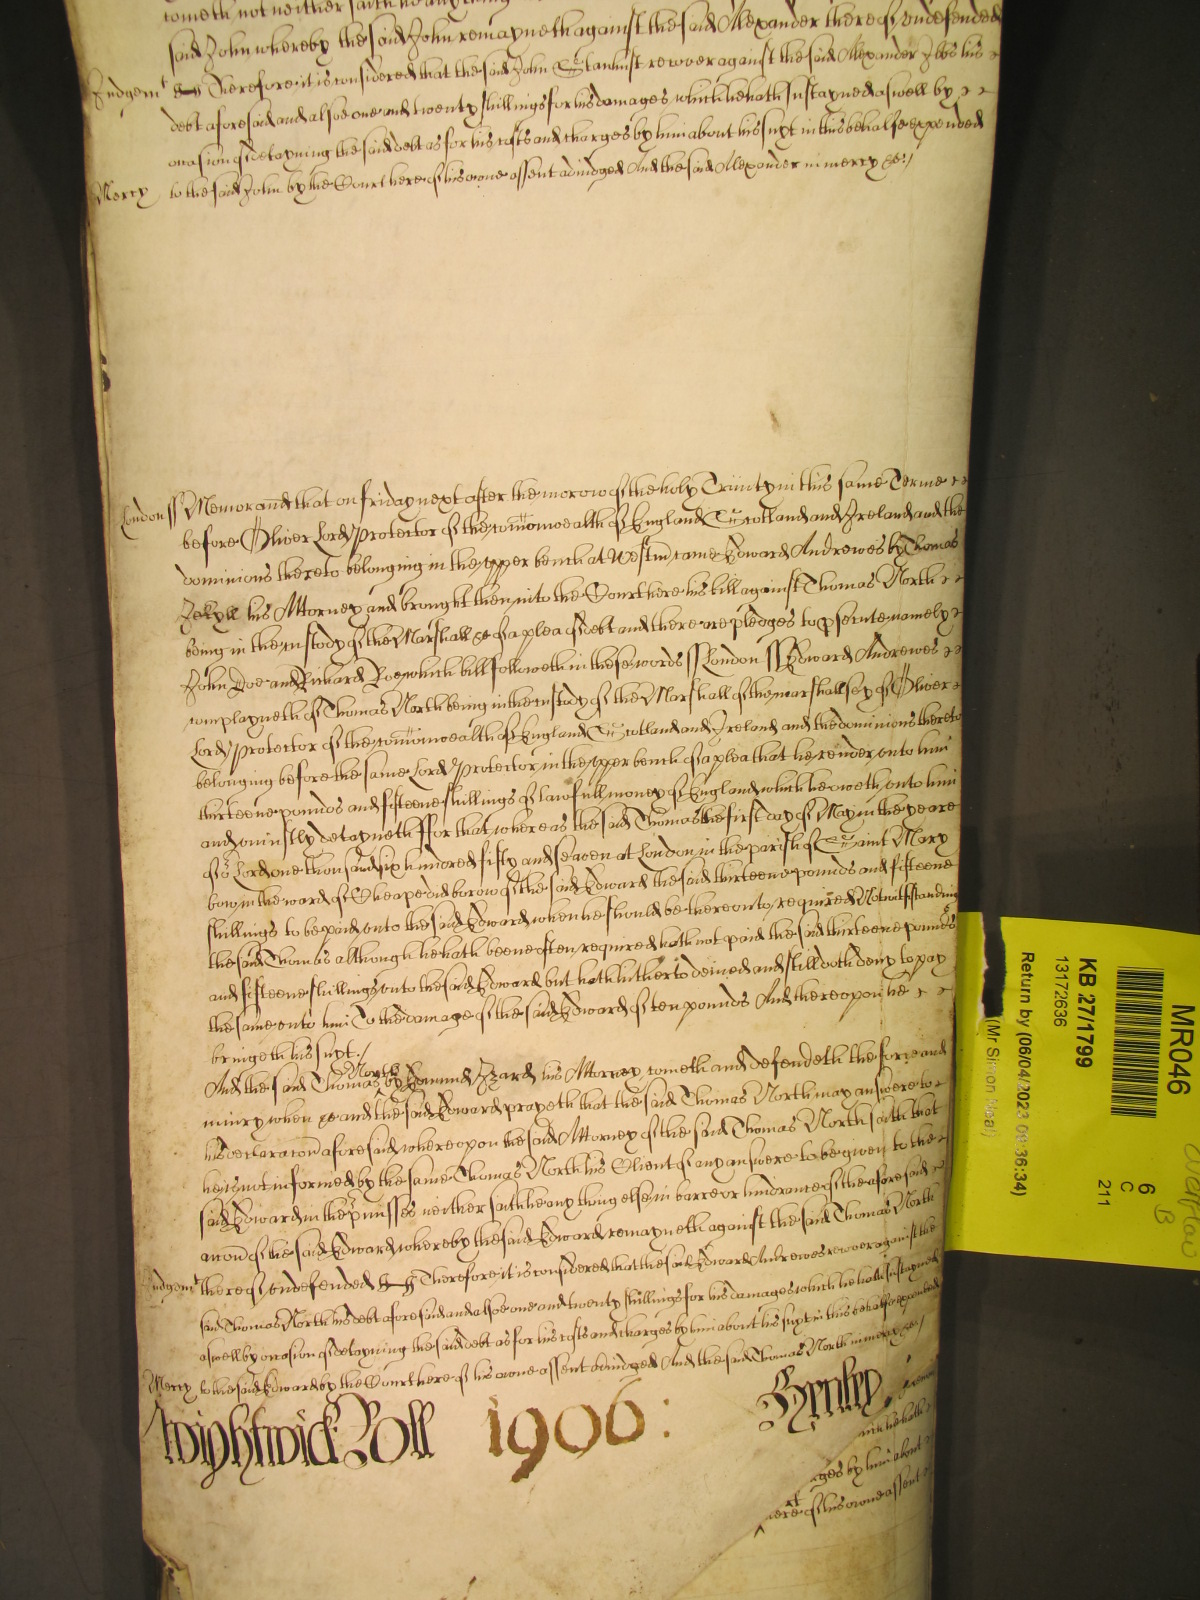 cometh not neither saith he any thing
said John whereby the said John remayneth against the said Alexander thereof undefended
Judgemt Therefore it is considered that the said John Stanhust recover against the said Alexander his
debt aforesaid and alsoe one and twenty shillings for his damages which he hath sustayned aswell by
occasion of detayning the said debt as for his costs and charges by him about his suyt in this behalfe expended
Mercy to the said John by the Court here of his owne assent adiudged And the said Alexander in mercy &c:/
London ss Memorand that on friday next after the morow of the holy Trinity in this same Terme
before Oliver Lord Protector of the comonwealth of England Scotland and Ireland and the
dominions thereto belonging in the upper bench at Westmr came Edward Andrewes by Thomas
Jekyll his Attorney and brought then into the Court here his bill against Thomas North
being in the custody of the Marshall &c of a plea of debt and there are pledges to psecute namely
John Doe and Richard Roe which bill followeth in these words ss London ss Edward Andrewes
complayneth of Thomas North being in the custody of the Marshall of the marshallsey of Oliver
Lord Protector of the comonwealth of England Scotland and Ireland and the dominions thereto
belonging before the same Lord Protector in the upper bench of a plea that he render unto him
thirteene pounds and fifteene shillings of lawfull money of England which he oweth unto him
and uniustly detayneth ffor that whereas the said Thomas the first day of May in the yeare
of or Lord one thousand six hundred fifty and seaven at London in the parish of Saint Mary
bow in the ward of Cheape did borow of the said Edward the said thirteene pounds and fifteene
shillings to be paid unto the said Edward when he should be thereunto required Notwithstanding
the said Thomas although he hath beene often required hath not paid the said thirteene pounds
and fifteene shillings unto the said Edward but hath hitherto denied and still doth deny to pay
the same unto him To the damage of the said Edward of ten pounds And thereupon he
bringeth his suyt./
And the said Thomas North by Edmund Izard his Attorney cometh and defendeth the force and
iniury when &c and the said Edward prayeth that the said Thomas North may answere to
his declaracon aforesaid whereupon the said Attorney of the said Thomas North saith that
he is not informed by the same Thomas North his Client of any answere to be given to the
said Edward in the pmisses neither saith he any thing else in barre or hindrance of the aforesaid
accon of the said Edward whereby the said Edward remayneth against the said Thomas North
Judgemt thereof undefended Therefore it is considered that the said Edward Andrewes recover against the
said Thomas North his debt aforesaid and alsoe one and twenty shillings for his damages which he hath sustayned
aswell by occasion of detayning the said debt as for his costs and charges by him about his suyt in this behalfe expended
Mercy to the said Edward by the Court here of his owne assent adiudged And the said Thomas North in mercy &c:/
Wightwick Roll 1906: Henley
which he hath
ges by him about
ere of his owne assent
MR046
6
C
211
KB 27/1799
13172636
Return by (06/04/2023 09:36:34)
(Mr Simon Neal)
B